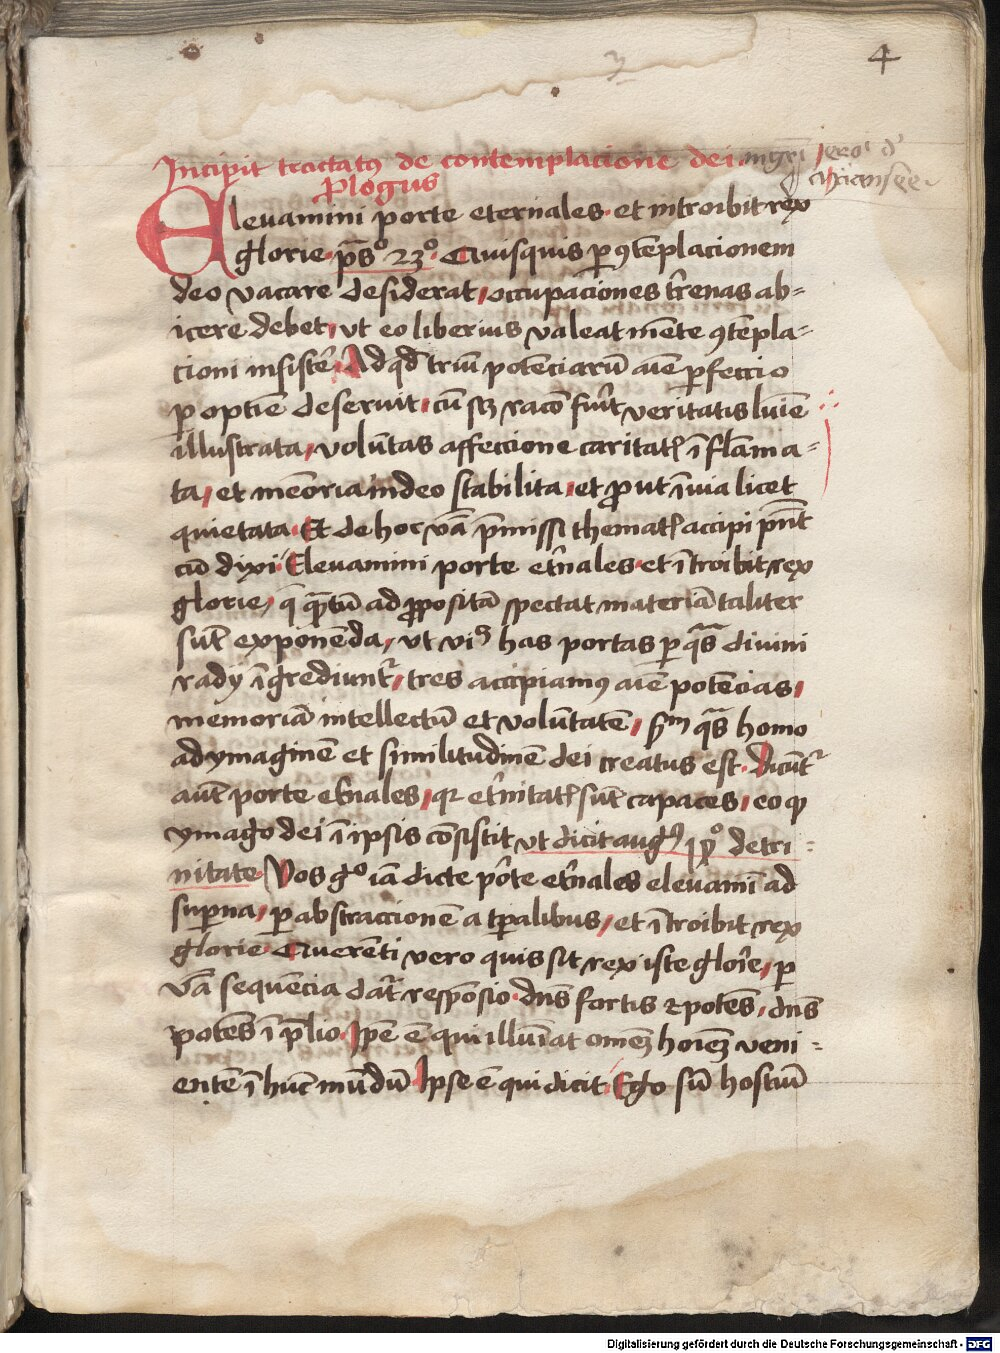 4
Incipit tractatꝯ de contemplacione dei mgrī Jero' d'
Plogus
Eleuamini porte eternales et introibit rex
glorie p̄s° 23° Quisquis p ꝯtēplacionem
deo vacare desiderat occupaciones t'renas ab=
icere debet vt eo liberius valeat mēte ꝯtēpla=
cioni insistē Ad qd̄ triū potēciarū aīe pfeccio
p optīe deseruit cū sꝫ racō fu'it veritatis lūīe
illustrata volūtas affeccione caritatꝭ īflāma=
ta et mēoria in deo stabilita et ꝓut ī via licet
quietata Et de hoc v̄ba p̄missi thematꝭ accipi pn̄t
cū dixi Eleuamini porte et'nales et ītroibit rex
glorie q̄ q̄tū ad ꝓpositā spectat materiā taliter
sūt exponēda vt has portas p q̄s diuini
radij īgrediunt' tres accipiamꝯ aīe potēcias
memoriā intellectū et volūtatē s̄m q̄s homo
ad ymaginē et similitudinē dei creatus est Dicūt'
aūt porte et'nales qꝛ et'nitatꝭ sūt capaces eo ꝙ
ymago dei ī ipsis cōsistit vt dicit augꝯ de tri=
nitate Vos g° iā dicte porte et'nales eleuamī ad
supna p abstraccionē a tp̄alibus et ītroibit rex
glorie Querēti vero quis sit rex iste glorie p
v̄ba sequēcia dat' respōsio dn̄s fortis ⁊ potēs dn̄s
potēs ī p̄lio Ipse ē qui illūīat omēꝫ hoīeꝫ veni=
entē ī hūc mūdū Ipse ē qui dicit Ego sū hostiū
Digitalisierung gefördert durch die Deutsche Forschungsgemeinschaft - DFG